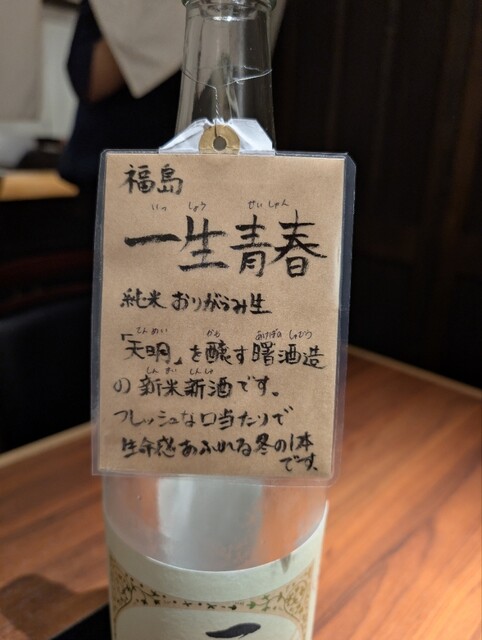 福島
いっしょう せいしゅん
一生青春
純米 おりがらみ生
てんめい かも あけぼのしゅぞう
「天明」を醸す曙酒造
しんまい しんしゅ
の新米新酒です。
フレッシュな口当たりで
生命感あふれる冬の1本
です。